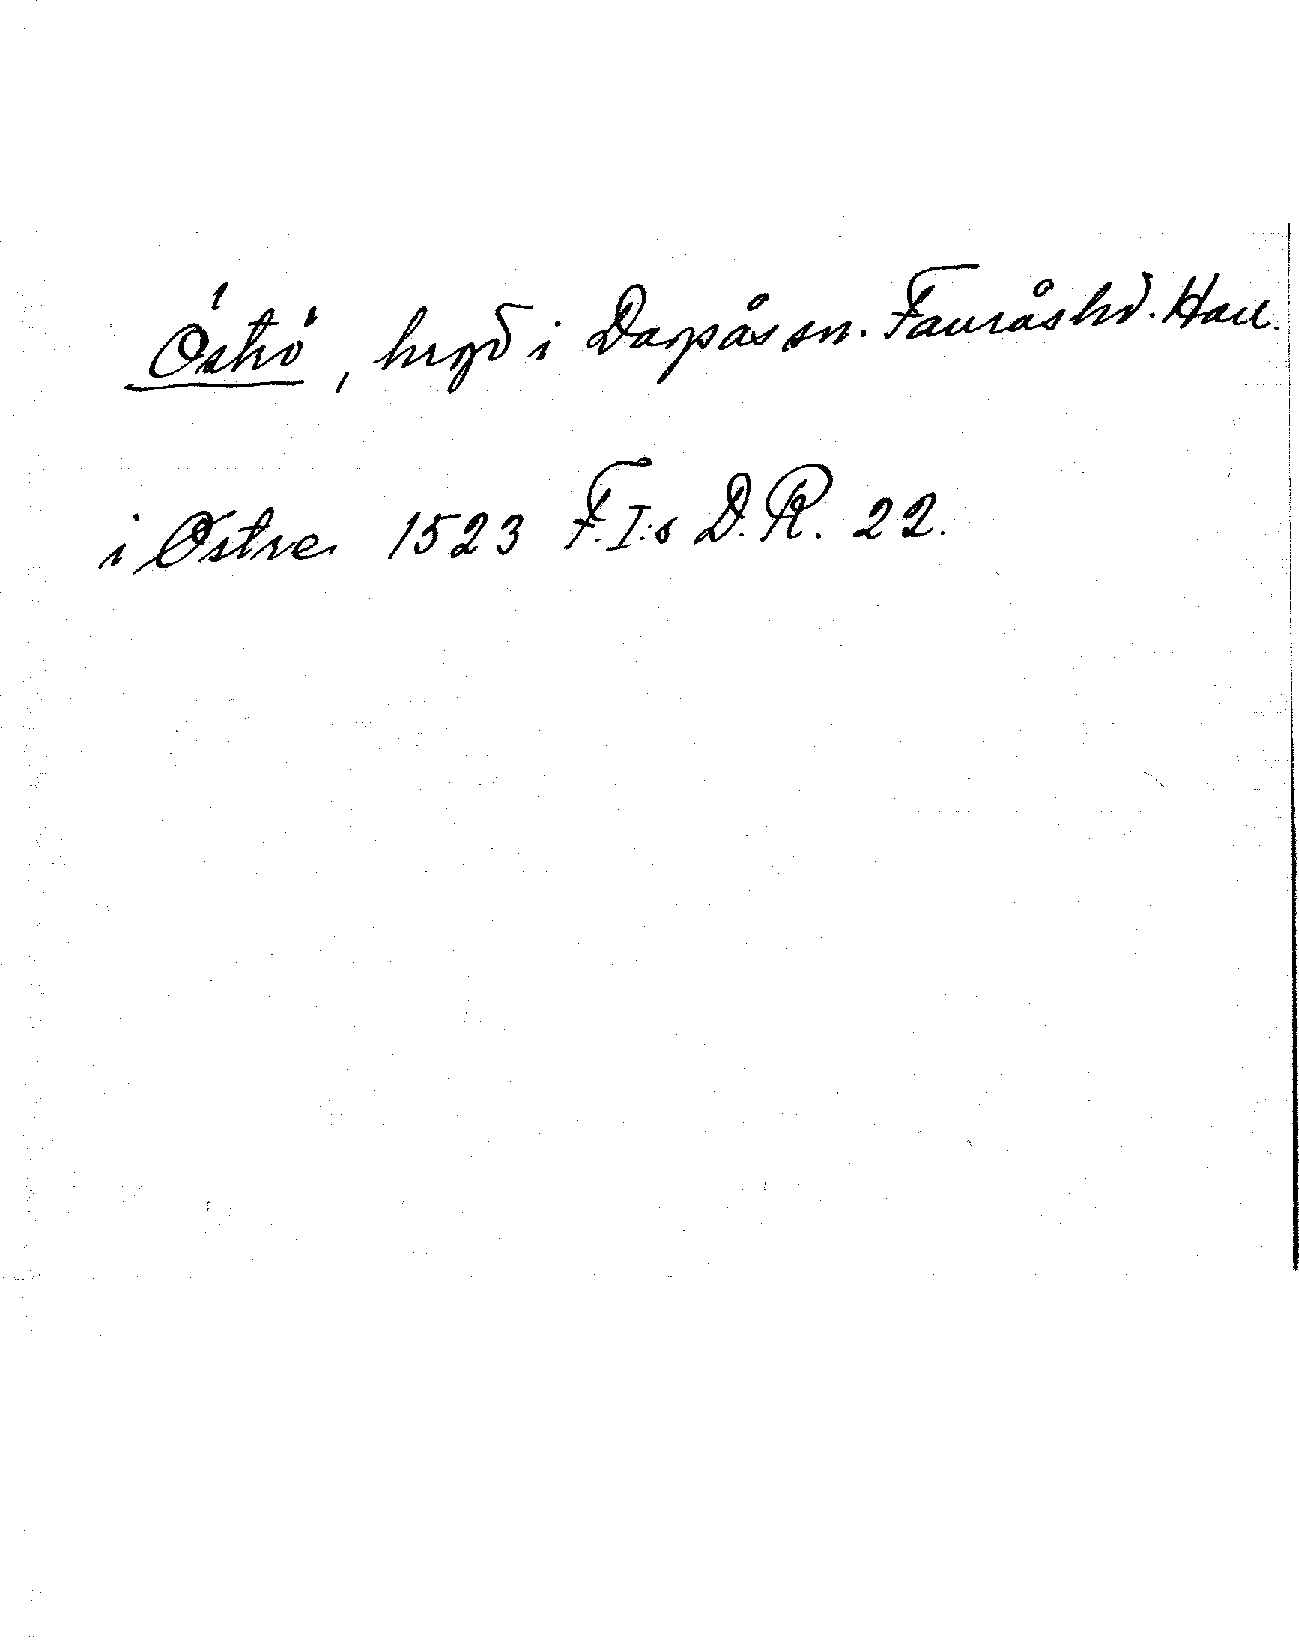 Öströ, hrgd i Dagsås sn. Fauråshd. Hall.
i Østre 1523 F.I:s D.R. 22.